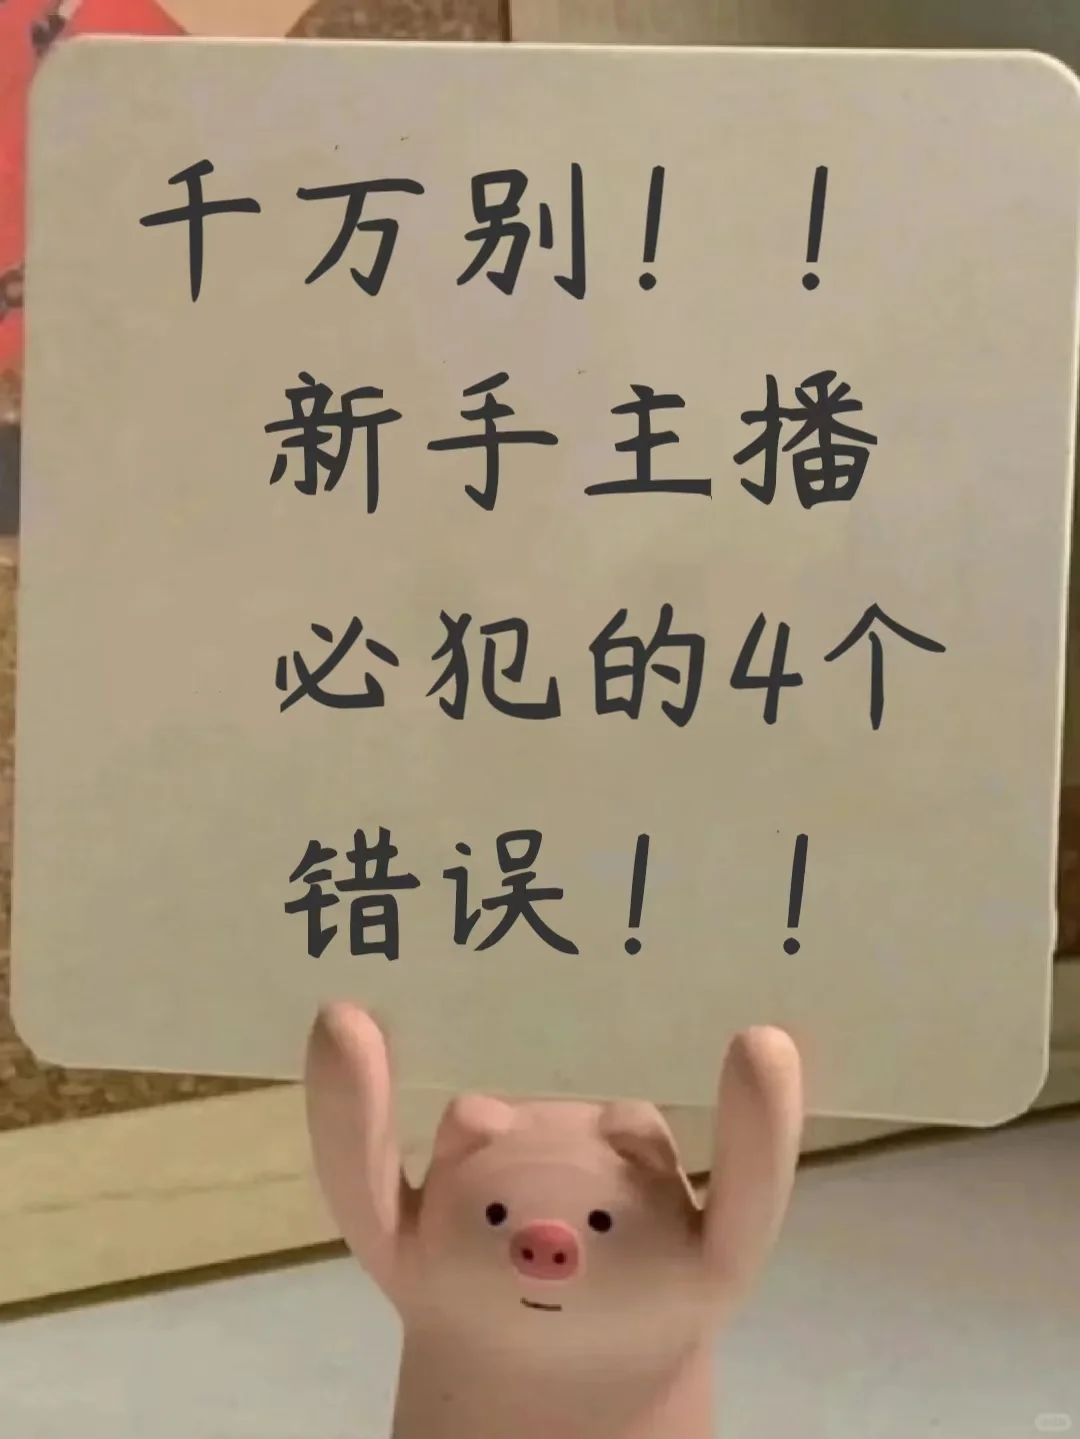 千万别！！
新手主播
必犯的4个
错误！！